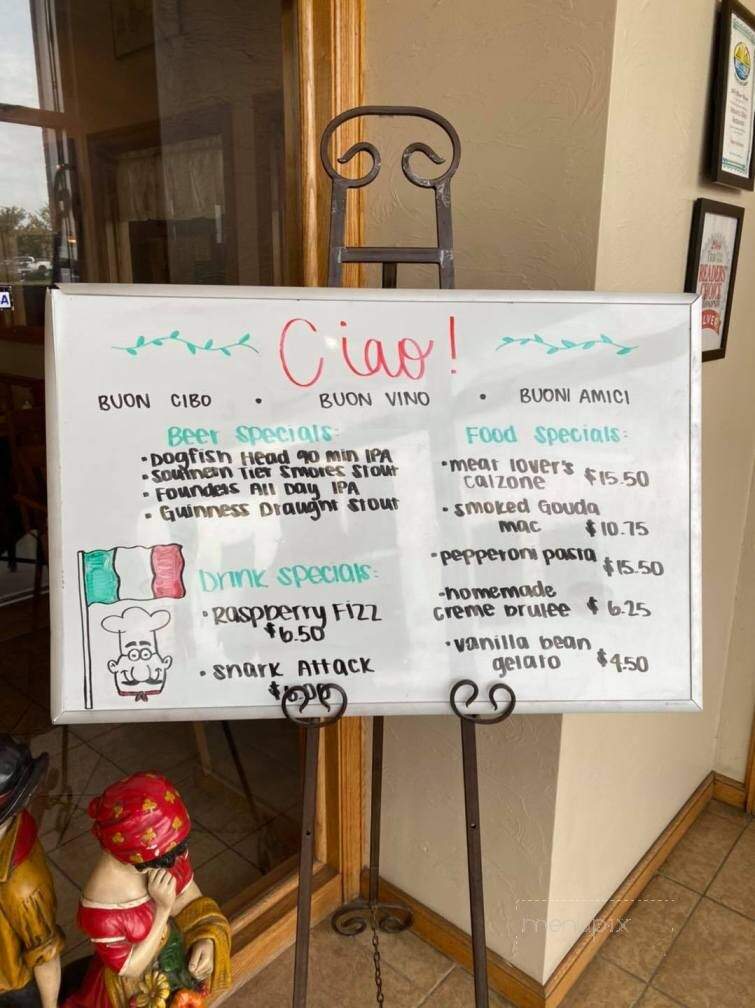 Ciao!
BUON CIBO • BUON VINO • BUONI AMICI
Beer Specials:
• Dogfish Head 90 min IPA
• Southern Tier Smores Stout
• Founders All Day IPA
• Guinness Draught Stout
Drink Specials:
• Raspberry Fizz
$6.50
• Shark Attack
Food Specials:
• meat lover's
calzone $15.50
• smoked Gouda
mac $10.75
• pepperoni pasta $15.50
• homemade
creme brulee $6.25
• vanilla bean
gelato $4.50
A
READERS
CHOICE
menupix